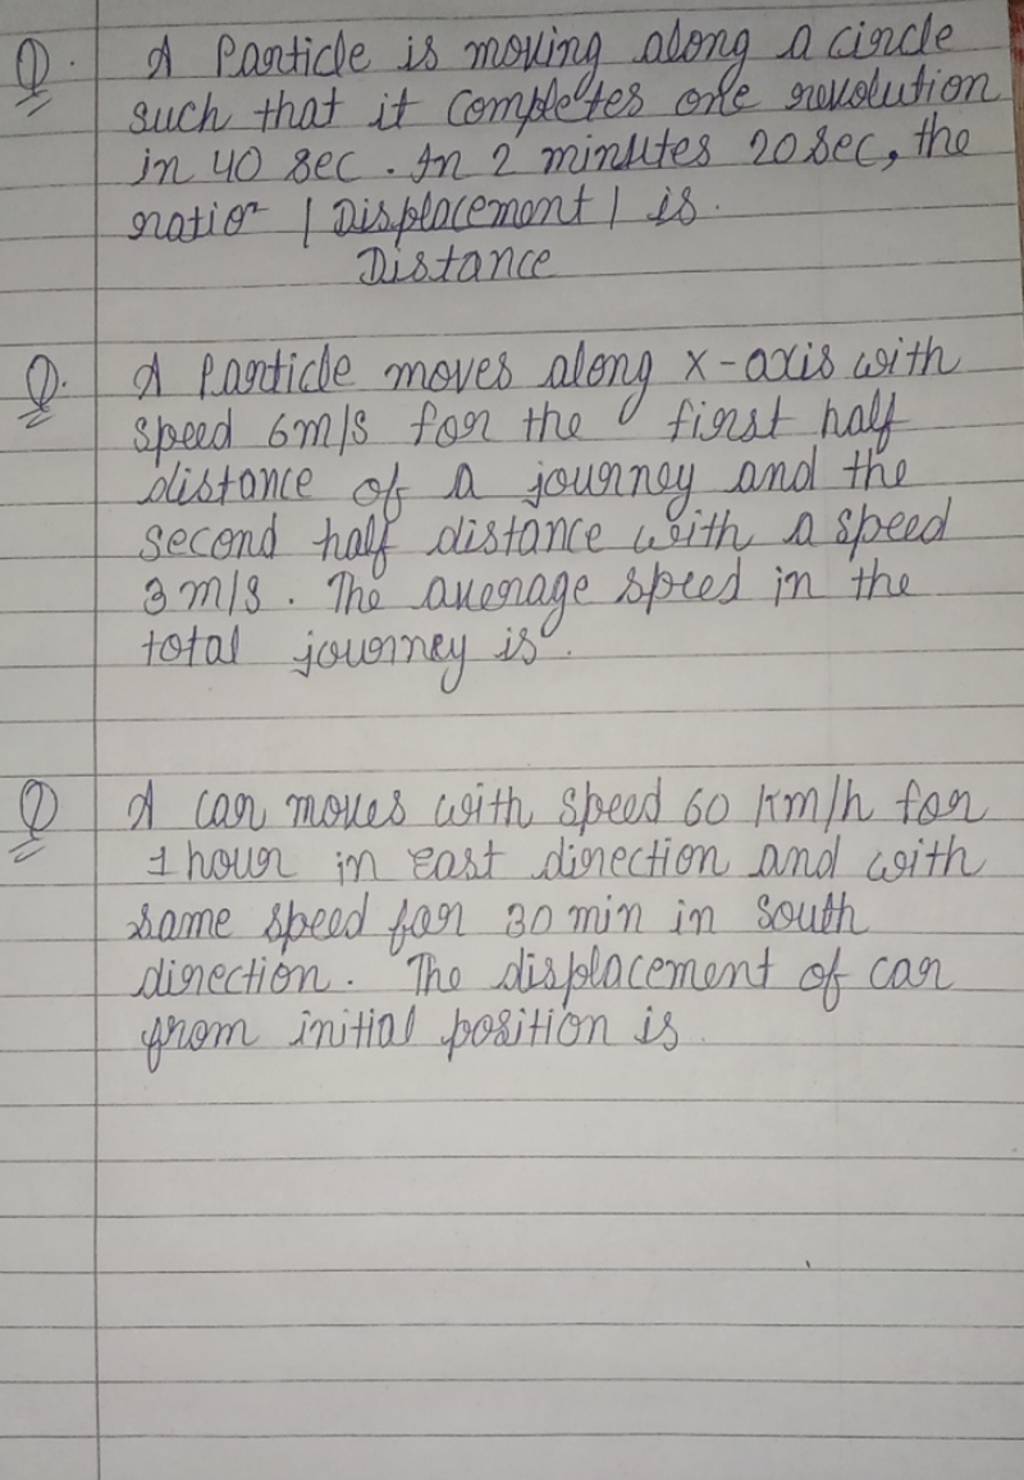 Q. A Particle is moving along a circle
such that it completes one revolution
in 40 sec. In 2 minutes 20 sec, the
ratio | Displacement | is.
Distance
Q. A Particle moves along x-axis with
speed 6m/s for the first half
distance of a journey and the
second half distance with a speed
3 m/s. The average speed in the
total journey is.
Q A car moves with speed 60 km/h for
1 hour in east direction and with
same speed for 30 min in south
direction. The displacement of car
from initial position is.